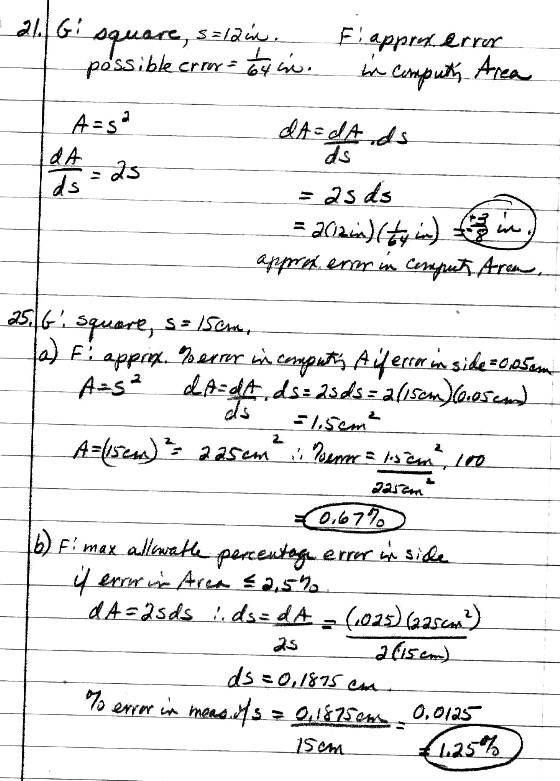 21. G: square, s=12in. F: approx error
possible error = 1/64 in. in computing Area
A=s² dA = dA/ds · ds
dA/ds = 2s
= 2s ds
= 2(12in)(± 1/64 in) = ±3/8 in.
approx. error in computing Area.
25. G: square, s = 15cm.
a) F: approx. % error in computing A if error in side = 0.05cm
A=s² dA = dA/ds · ds = 2sds = 2(15cm)(0.05cm)
= 1.5cm²
A=(15cm)² = 225cm² ∴ % error = 1.5cm²/225cm² · 100
= 0.67%
b) F: max allowable percentage error in side
if error in Area ≤ 2.5%.
dA = 2sds ∴ ds = dA/2s = (.025)(225cm²)/2(15cm)
ds = 0.1875 cm.
% error in meas. of s = 0.1875cm/15cm = 0.0125
= 1.25%